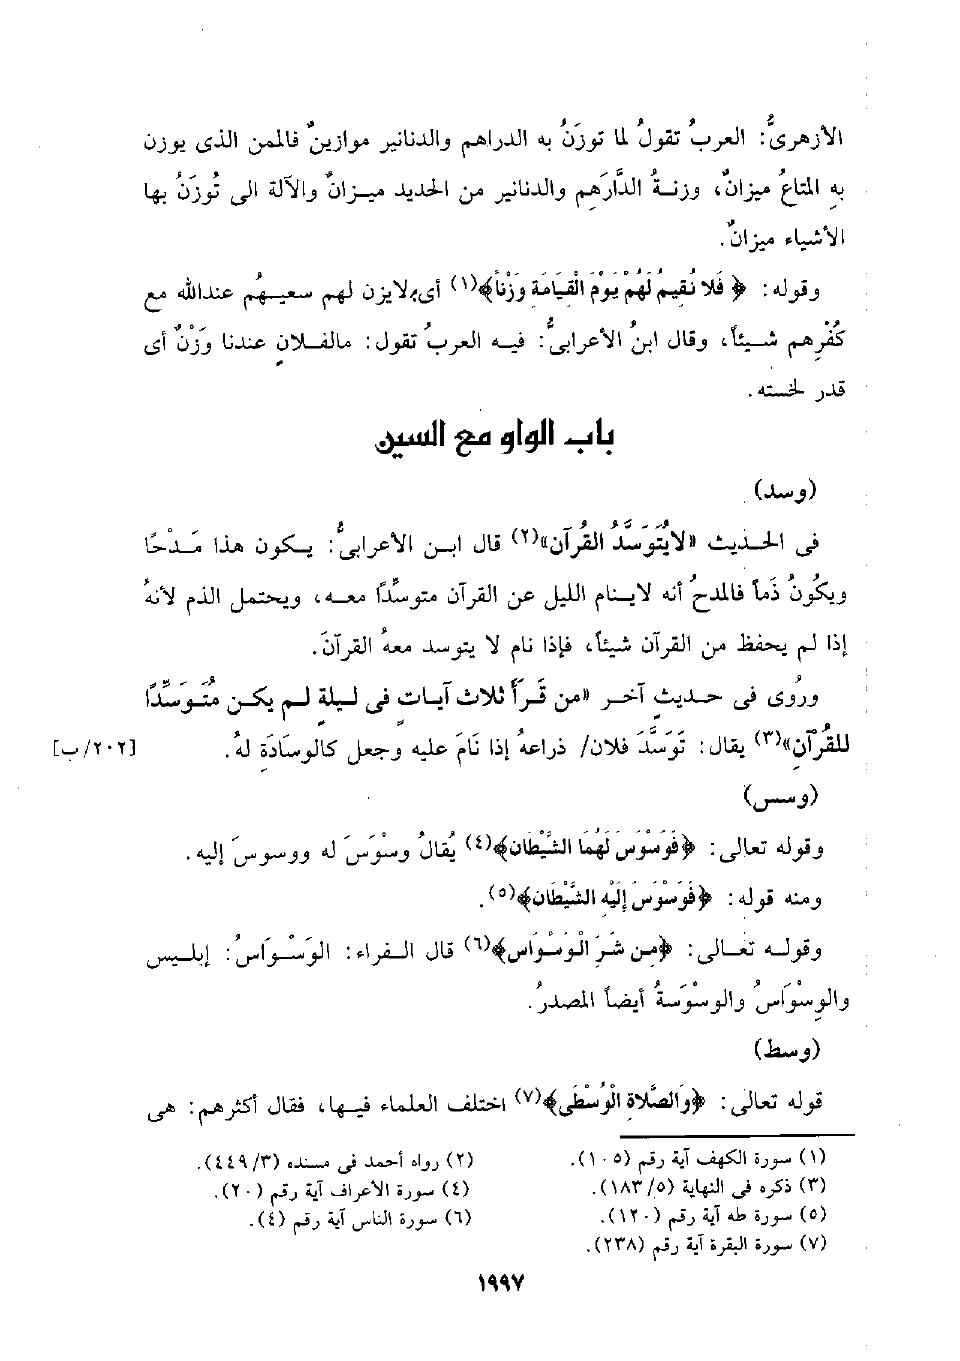 الأزهرىُّ: العربُ تقولُ لما توزَنُ به الدراهم والدنانير موازينٌ فالمن الذى يوزن
به المتاعُ ميزانٌ، وزنـةُ الدَّارَهِم والدنانير من الحديد ميـزانٌ والآلة الى تُوزَنُ بها
الأشياء ميزانٌ.
وقوله: ﴿ فَلا نُقِيمُ لَهُمْ يَوْمَ الْقِيَامَةِ وَزْناً﴾(١) أى: لايزن لهم سعيـهُم عندالله مع
كُفْرِهم شـيئاً، وقال ابنُ الأعرابىُّ: فيـه العربُ تقول: مالفـلانٍ عندنا وَزْنٌ أى
قدر لخسته.
باب الواو مع السين
(وسد)
فى الحـديث «لايُتَوَسَّدُ القُرآن»(٢) قال ابـن الأعرابىُّ: يـكون هذا مَـدْحًا
ويكُونُ ذَماً فالمدحُ أنه لايـنام الليل عن القرآن متوسِّدًا معـه، ويحتمل الذم لأنهُ
إذا لم يحفظ من القرآن شيئاً، فإذا نام لا يتوسد معهُ القرآنَ.
ورُوى فى حـديثٍ آخـر «من قَـرَأَ ثلاث آيـاتٍ فى ليلةٍ لـم يكـن مُتَـوَسِّدًا
للقُرْآنِ»(٣) يقال: تَوَسَّدَ فلان/ ذراعهُ إذا نَامَ عليه وجعل كالوسَادَةِ لهُ. [٢٠٢/ب]
(وسس)
وقوله تعالى: ﴿فَوَسْوَسَ لَهُمَا الشَّيْطَان﴾(٤) يُقالُ وسْوَسَ له ووسوسَ إليه.
ومنه قوله: ﴿فَوَسْوَسَ إِلَيْهِ الشَّيْطَان﴾(٥).
وقولـه تعـالى: ﴿مِن شَرِّ الْوَسْوَاس﴾(٦) قال الـفراء: الوَسْـوَاسُ: إبلـيس
والوِسْوَاسُ والوسْوَسةُ أيضاً المصدرُ.
(وسط)
قوله تعالى: ﴿وَالصَّلاةِ الْوُسْطَى﴾(٧) اختلف العلماء فيـها، فقال أكثرهم: هى
(١) سورة الكهف آية رقم (١٠٥).
(٢) رواه أحمد فى مسنده (٤٤٩/٣).
(٣) ذكره فى النهاية (١٨٣/٥).
(٤) سورة الأعراف آية رقم (٢٠).
(٥) سورة طه آية رقم (١٢٠).
(٦) سورة الناس آية رقم (٤).
(٧) سورة البقرة آية رقم (٢٣٨).
١٩٩٧